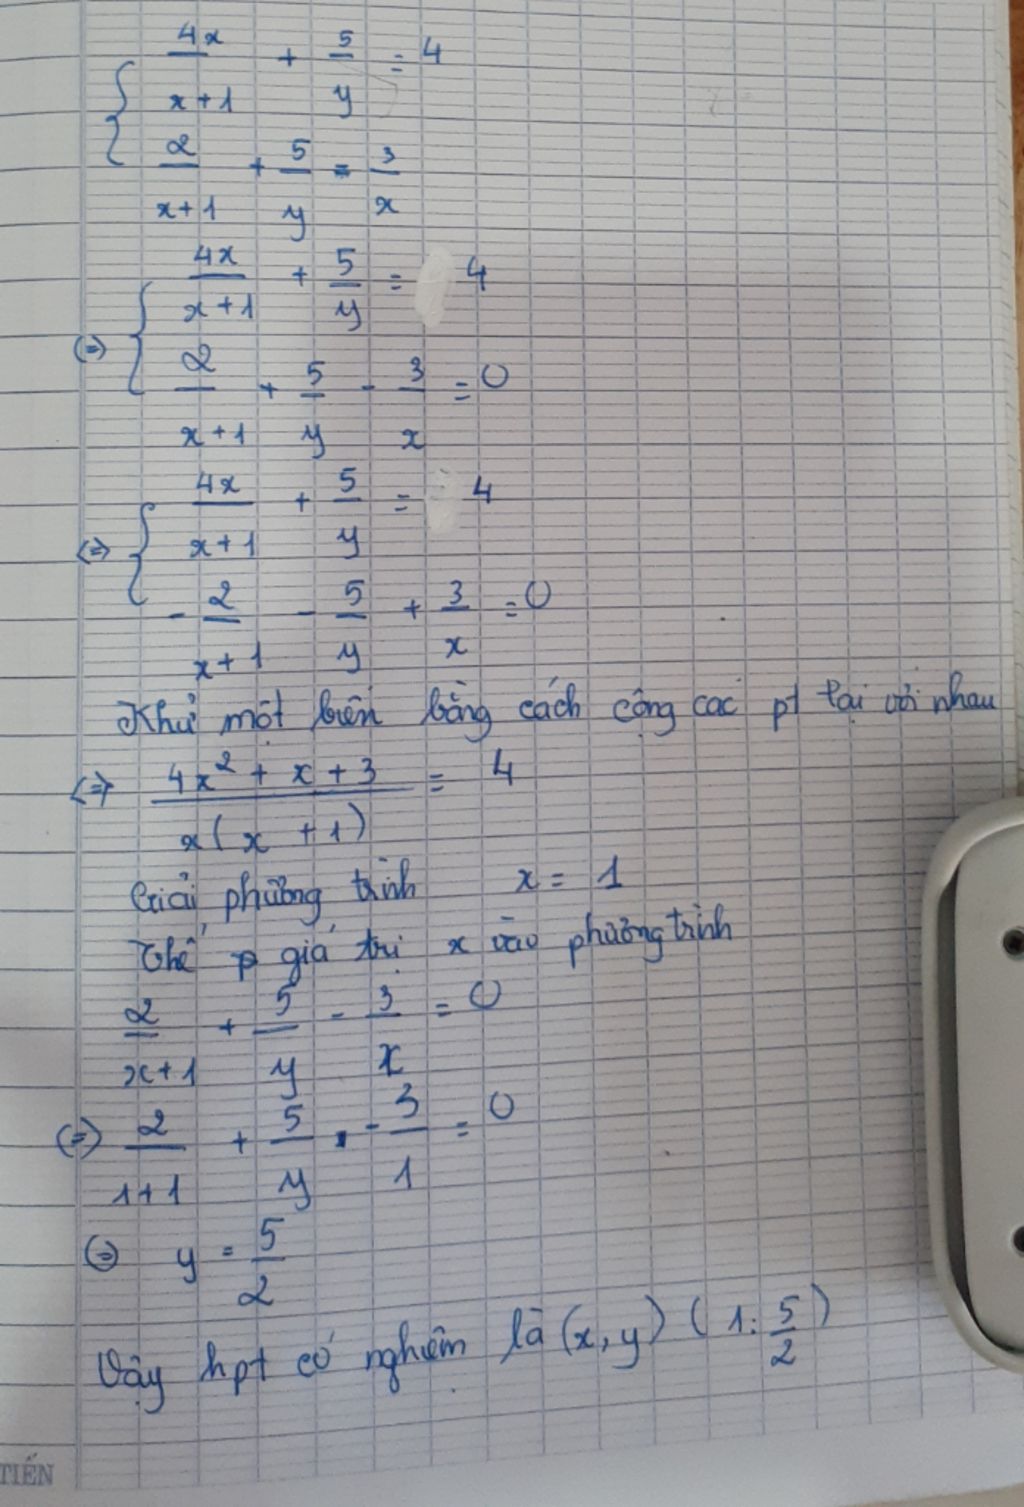 4x/(x+1) + 5/y = 4
2/(x+1) + 5/y = 3/x
4x/(x+1) + 5/y = 4
(=) 2/(x+1) + 5/y - 3/x = 0
4x/(x+1) + 5/y = 4
(=) - 2/(x+1) - 5/y + 3/x = 0
Khử một biến bằng cách cộng các pt lại với nhau
(=) (4x² + x + 3)/(x(x + 1)) = 4
Giải phương trình x = 1
Thế p giá trị x vào phương trình
2/(x+1) + 5/y - 3/x = 0
(=) 2/(1+1) + 5/y - 3/1 = 0
(=) y = 5/2
Vậy hpt có nghiệm là (x, y) (1; 5/2)
TIẾN